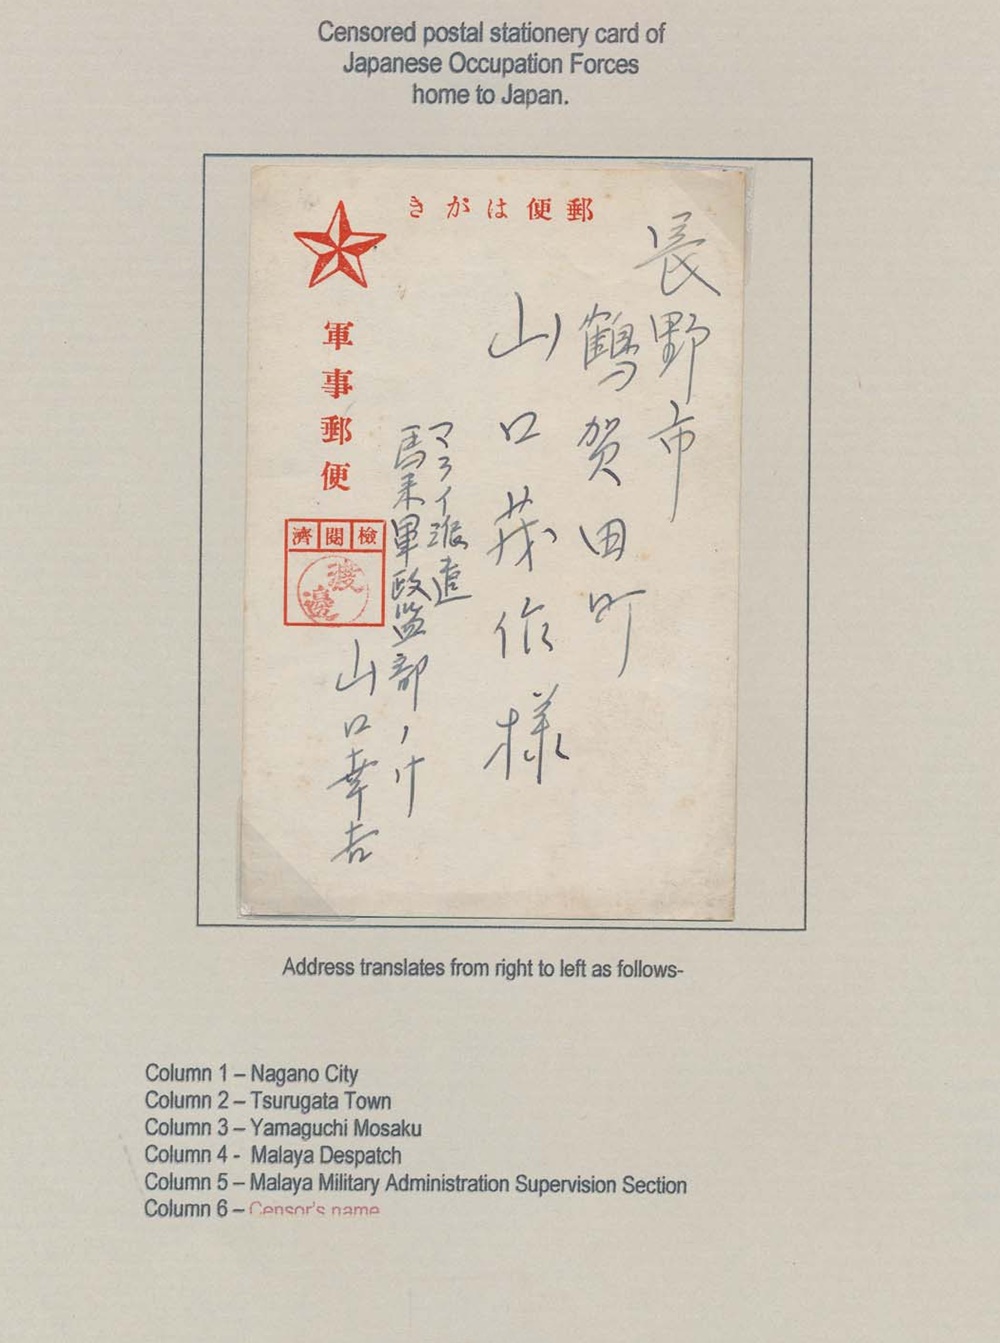 Censored postal stationery card of
Japanese Occupation Forces
home to Japan.
郵便はがき
軍事郵便
検閲済
渡邊
長野市
鶴賀田町
山口茂作様
マライ派遣
馬来軍政監部ノ什
山口幸吉
Address translates from right to left as follows-
Column 1 – Nagano City
Column 2 – Tsurugata Town
Column 3 – Yamaguchi Mosaku
Column 4 - Malaya Despatch
Column 5 – Malaya Military Administration Supervision Section
Column 6 – Censor's name